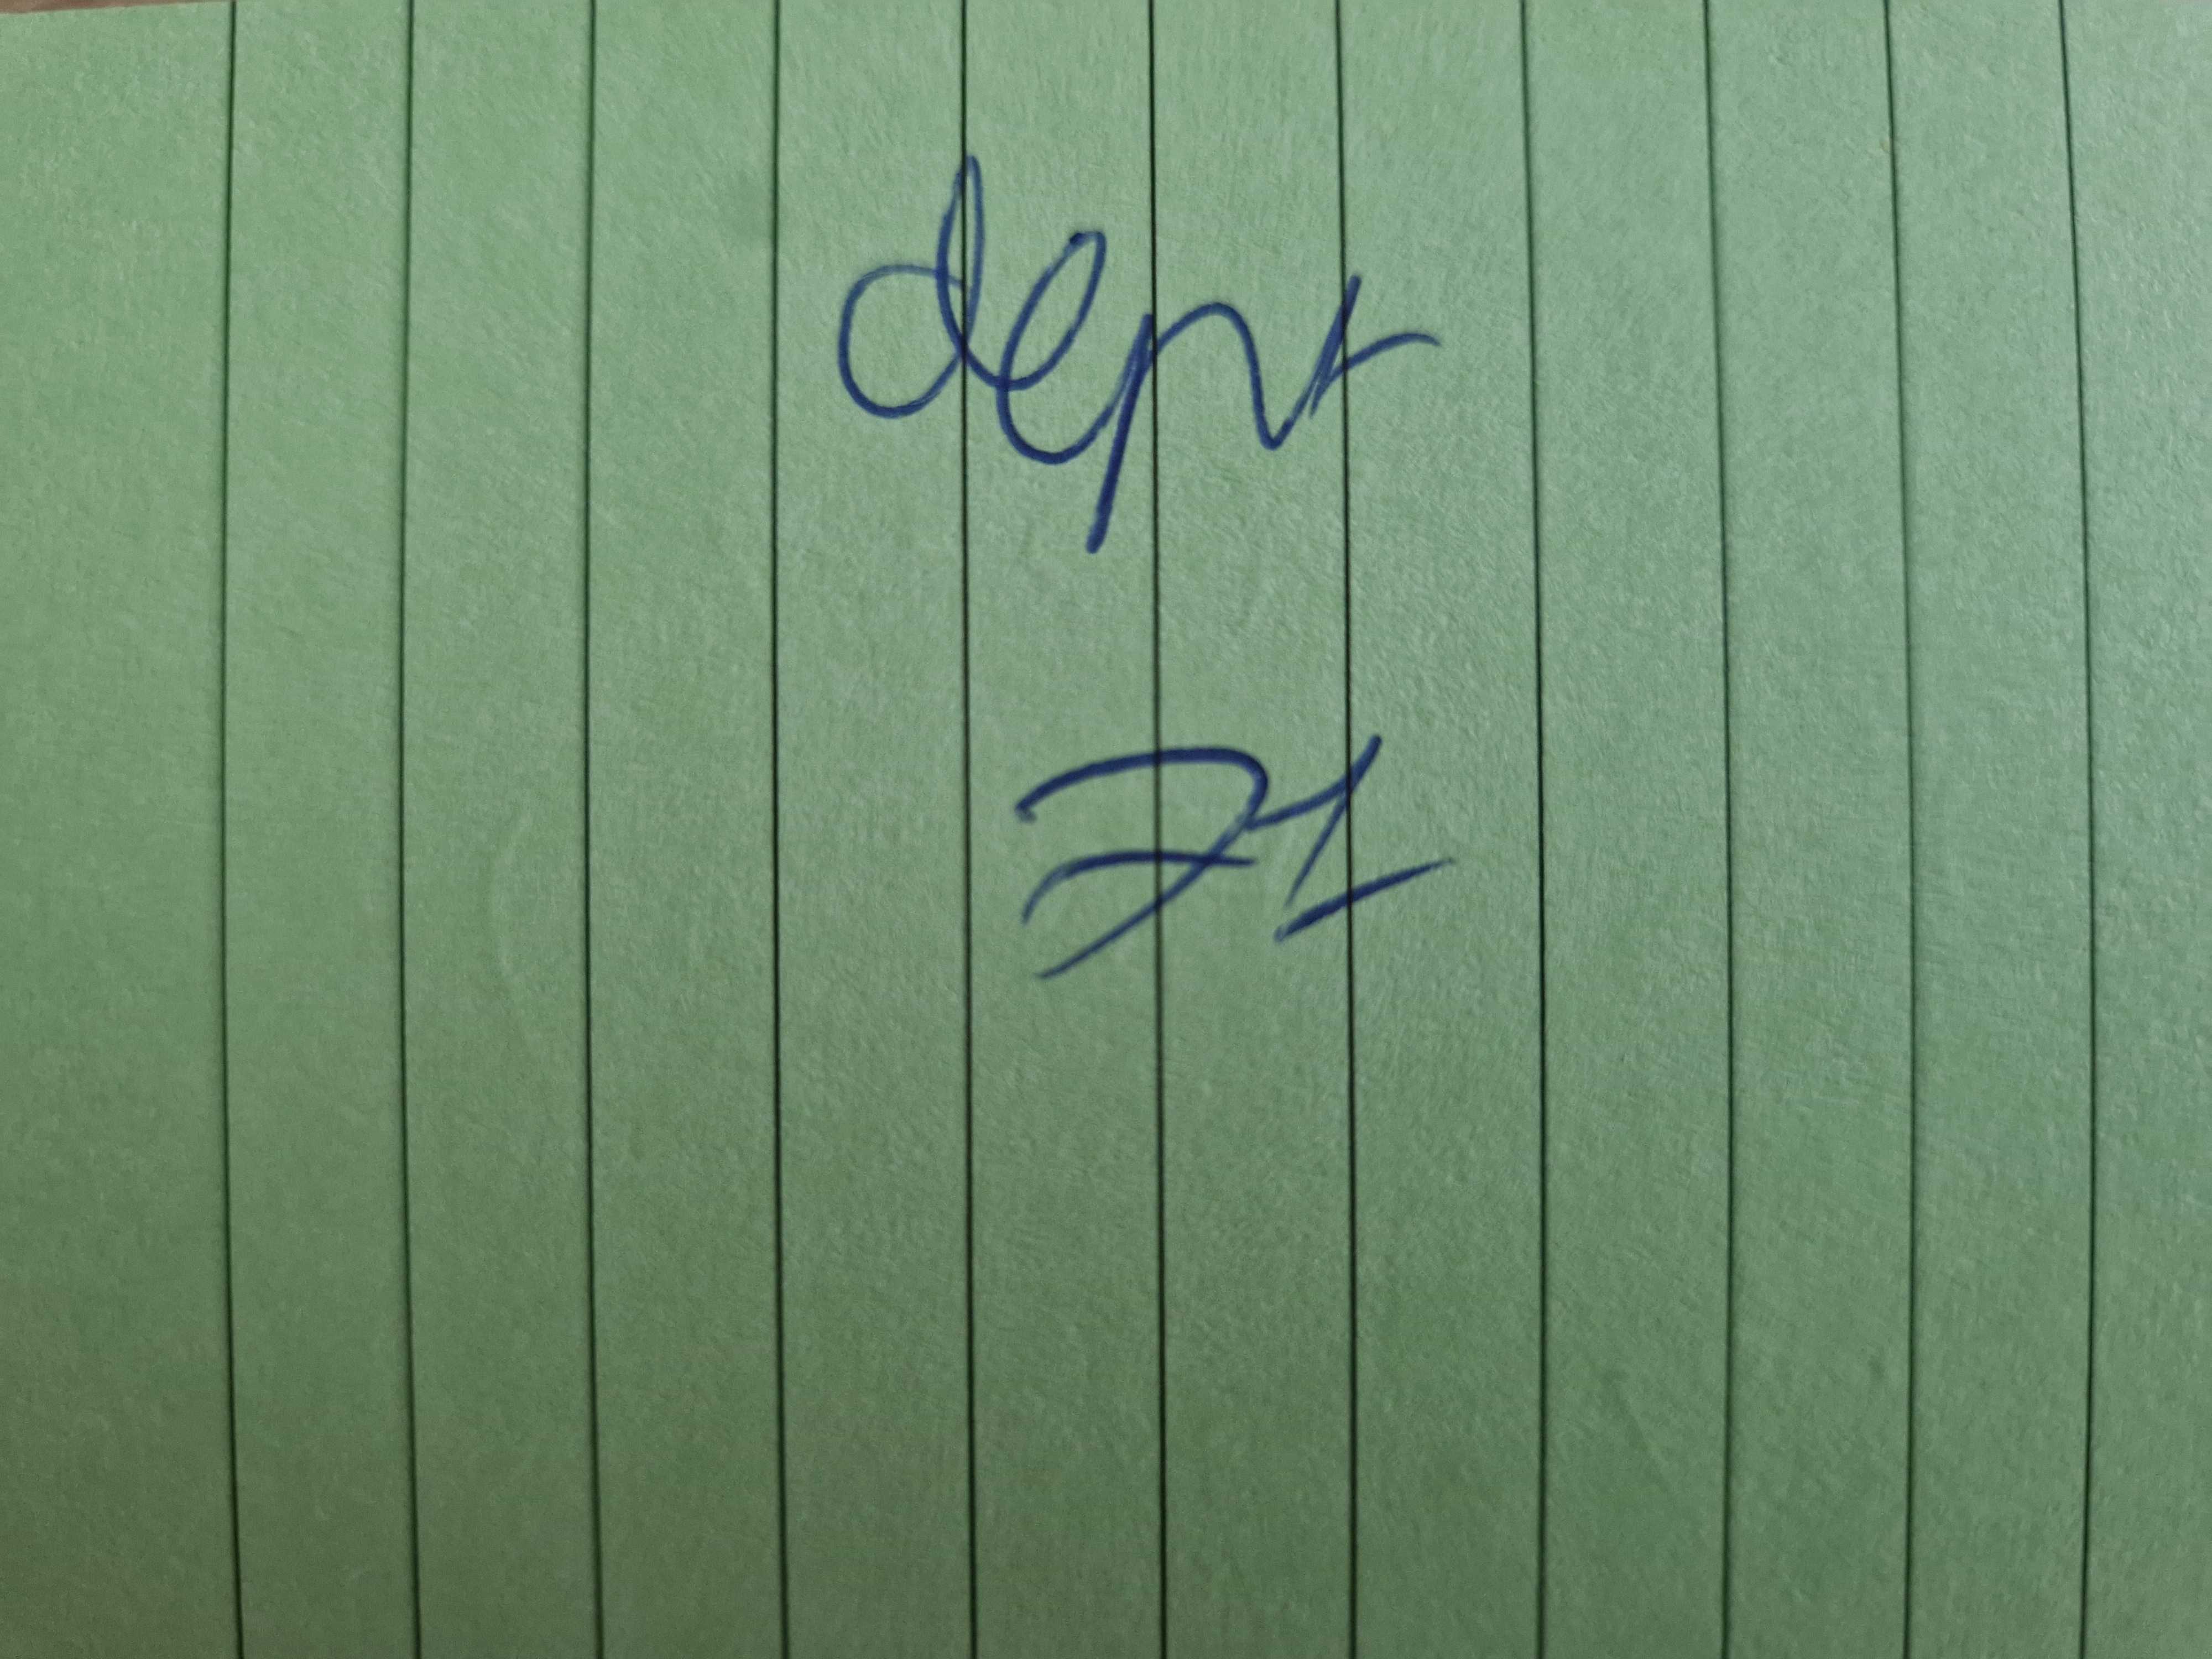 dept
71